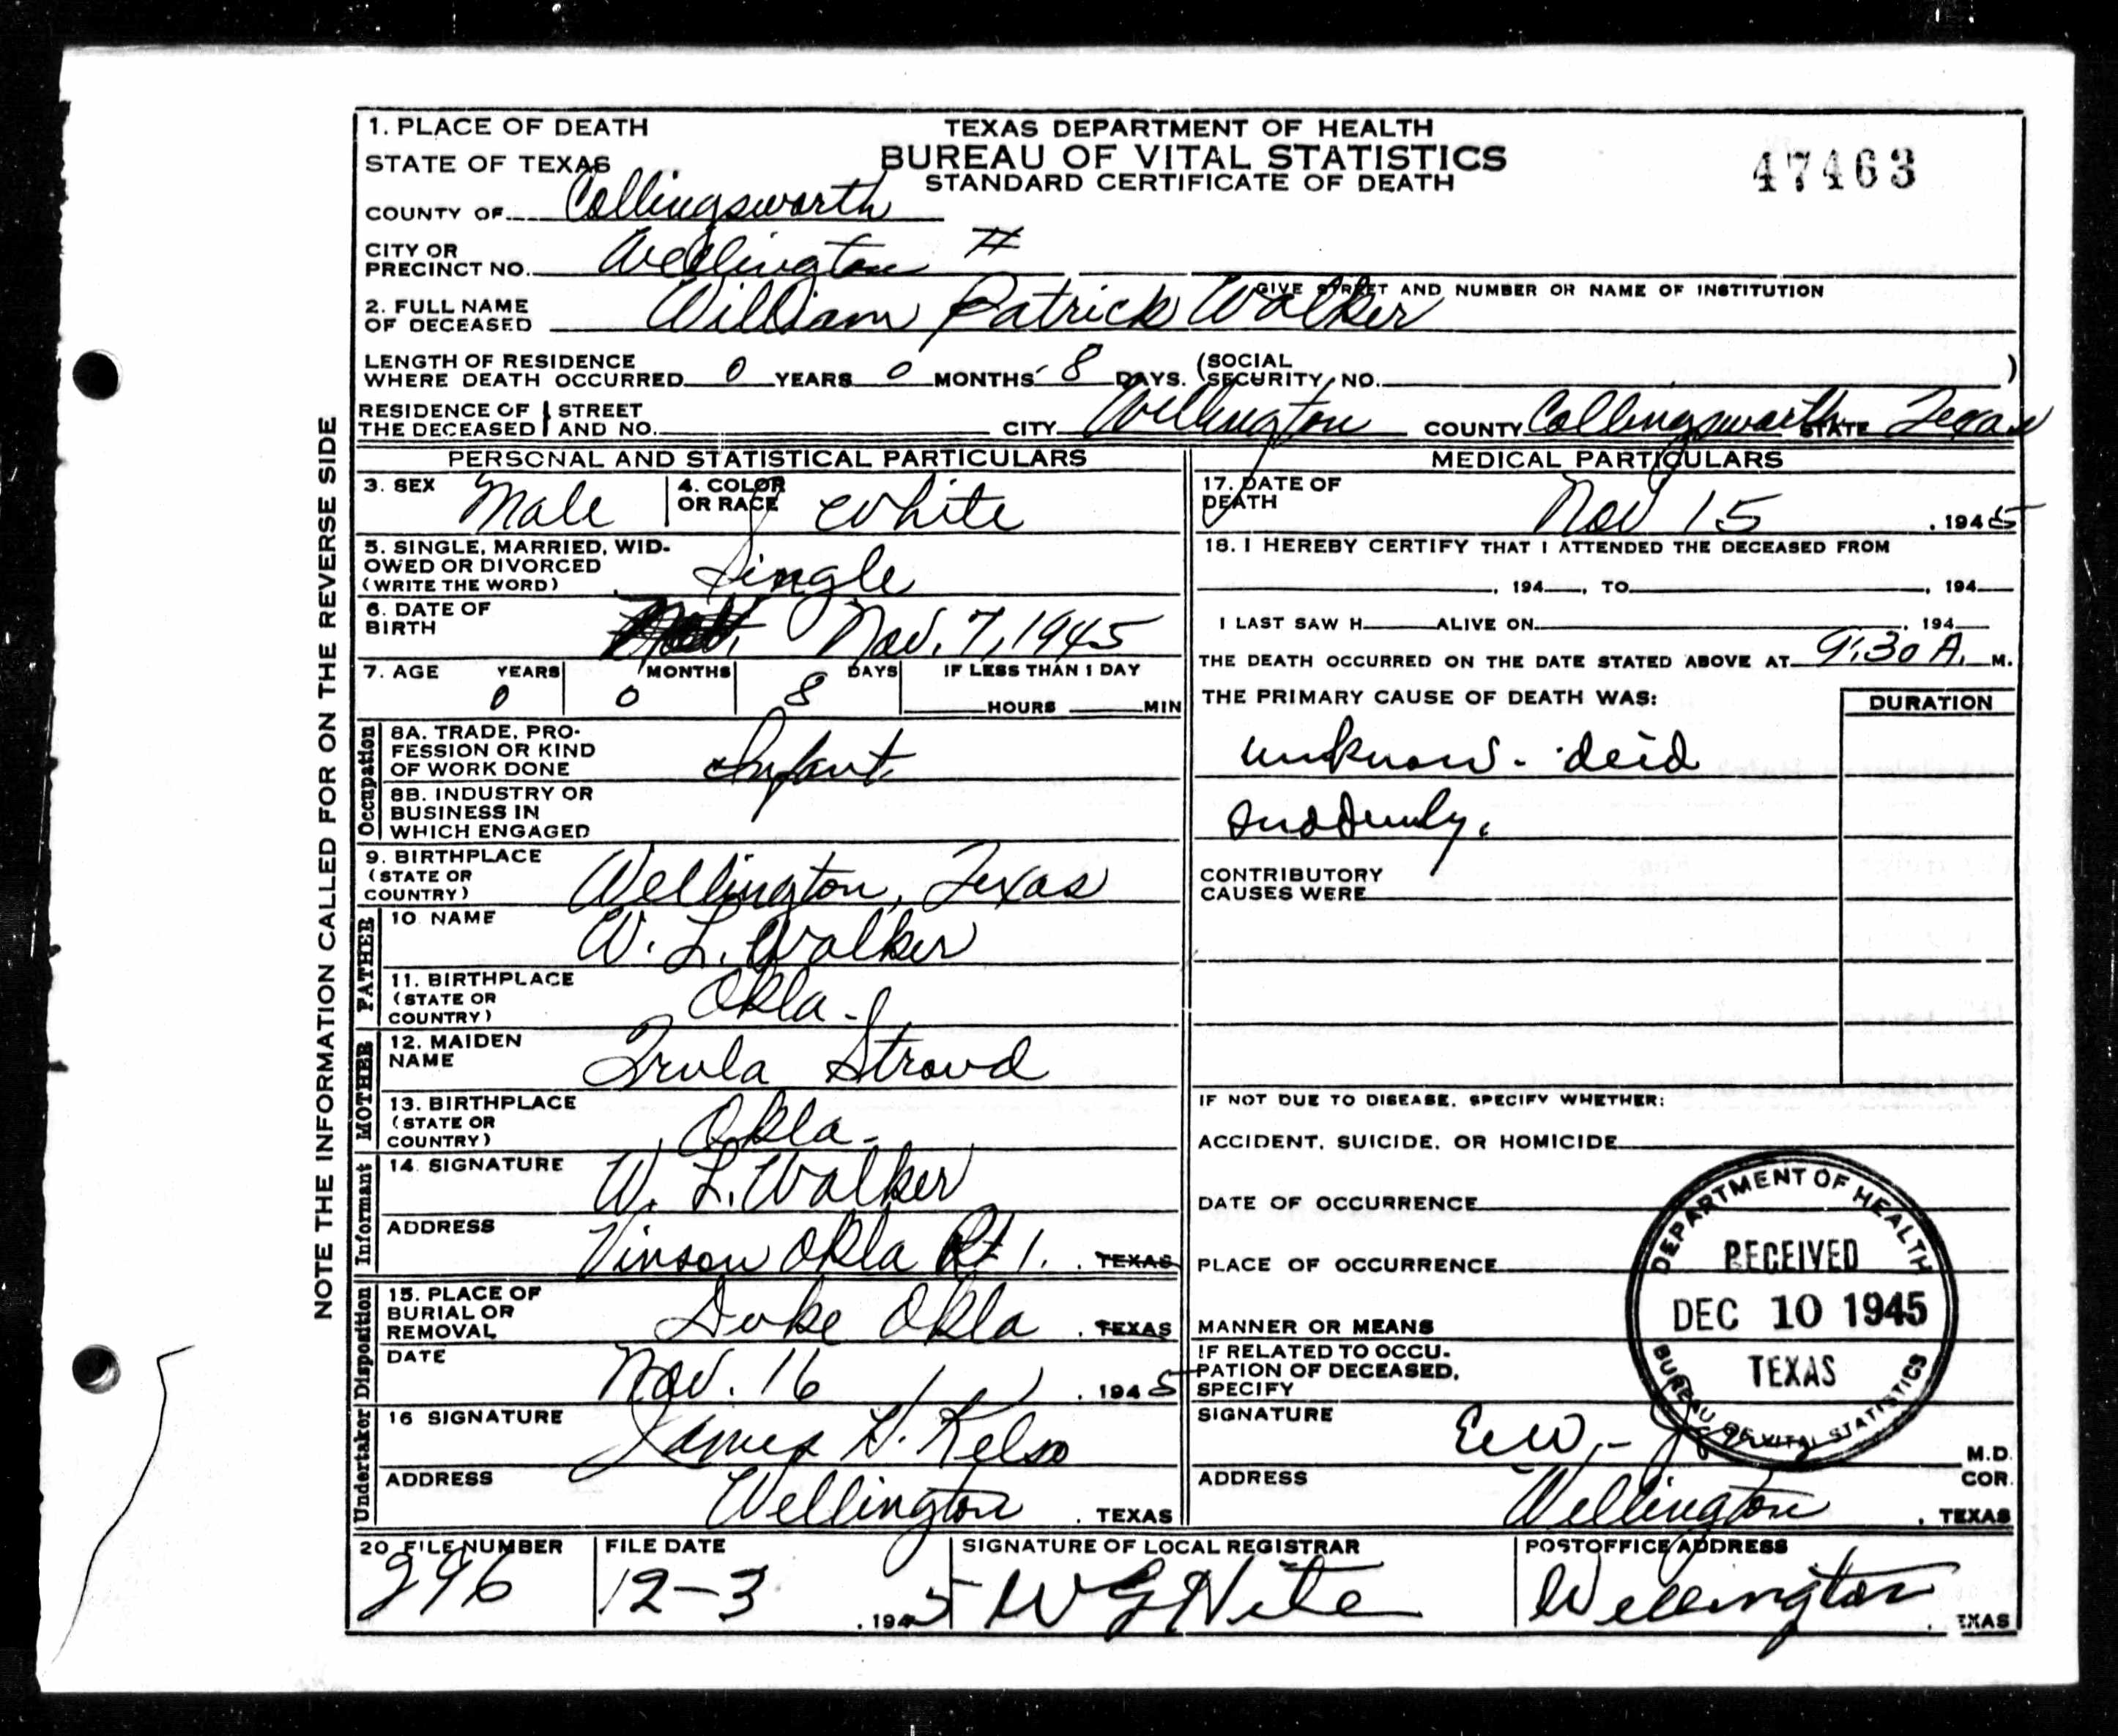 1. PLACE OF DEATH
STATE OF TEXAS
TEXAS DEPARTMENT OF HEALTH
BUREAU OF VITAL STATISTICS
STANDARD CERTIFICATE OF DEATH
47463
COUNTY OF Collingsworth
CITY OR PRECINCT NO. Wellington #
GIVE STREET AND NUMBER OR NAME OF INSTITUTION
2. FULL NAME OF DECEASED William Patrick Walker
LENGTH OF RESIDENCE WHERE DEATH OCCURRED 0 YEARS 0 MONTHS 8 DAYS. (SOCIAL SECURITY NO. )
RESIDENCE OF THE DECEASED STREET AND NO. CITY Wellington COUNTY Collingsworth STATE Texas
NOTE THE INFORMATION CALLED FOR ON THE REVERSE SIDE
PERSONAL AND STATISTICAL PARTICULARS
3. SEX Male 4. COLOR OR RACE White
5. SINGLE, MARRIED, WIDOWED OR DIVORCED (WRITE THE WORD) Single
6. DATE OF BIRTH Nov. 7, 1945
7. AGE YEARS 0 MONTHS 0 DAYS 8 IF LESS THAN 1 DAY HOURS MIN
Occupation
8A. TRADE, PROFESSION OR KIND OF WORK DONE Infant
8B. INDUSTRY OR BUSINESS IN WHICH ENGAGED
9. BIRTHPLACE (STATE OR COUNTRY) Wellington, Texas
FATHER
10 NAME W. L. Walker
11. BIRTHPLACE (STATE OR COUNTRY) Okla.
MOTHER
12. MAIDEN NAME Trula Stroud
13. BIRTHPLACE (STATE OR COUNTRY) Okla.
Informant
14. SIGNATURE W. L. Walker
ADDRESS Vinson Okla Rt 1. . TEXAS
Disposition
15. PLACE OF BURIAL OR REMOVAL Duke Okla . TEXAS
DATE Nov. 16 . 1945
Undertaker
16 SIGNATURE James H. Kelso
ADDRESS Wellington . TEXAS
MEDICAL PARTICULARS
17. DATE OF DEATH Nov 15 . 1945
18. I HEREBY CERTIFY THAT I ATTENDED THE DECEASED FROM
, 194 , TO , 194
I LAST SAW H ALIVE ON , 194
THE DEATH OCCURRED ON THE DATE STATED ABOVE AT 9:30 A. M.
THE PRIMARY CAUSE OF DEATH WAS: DURATION
unknown - deid
suddenly.
CONTRIBUTORY CAUSES WERE
IF NOT DUE TO DISEASE, SPECIFY WHETHER:
ACCIDENT, SUICIDE, OR HOMICIDE
DATE OF OCCURRENCE
PLACE OF OCCURRENCE
MANNER OR MEANS
IF RELATED TO OCCUPATION OF DECEASED, SPECIFY
SIGNATURE E.W. M.D.
ADDRESS Wellington COR. . TEXAS
DEPARTMENT OF HEALTH
RECEIVED
DEC 10 1945
TEXAS
BUREAU OF VITAL STATISTICS
20 FILE NUMBER 296 FILE DATE 12-3 . 1945 SIGNATURE OF LOCAL REGISTRAR W G Nite POSTOFFICE ADDRESS Wellington . TEXAS